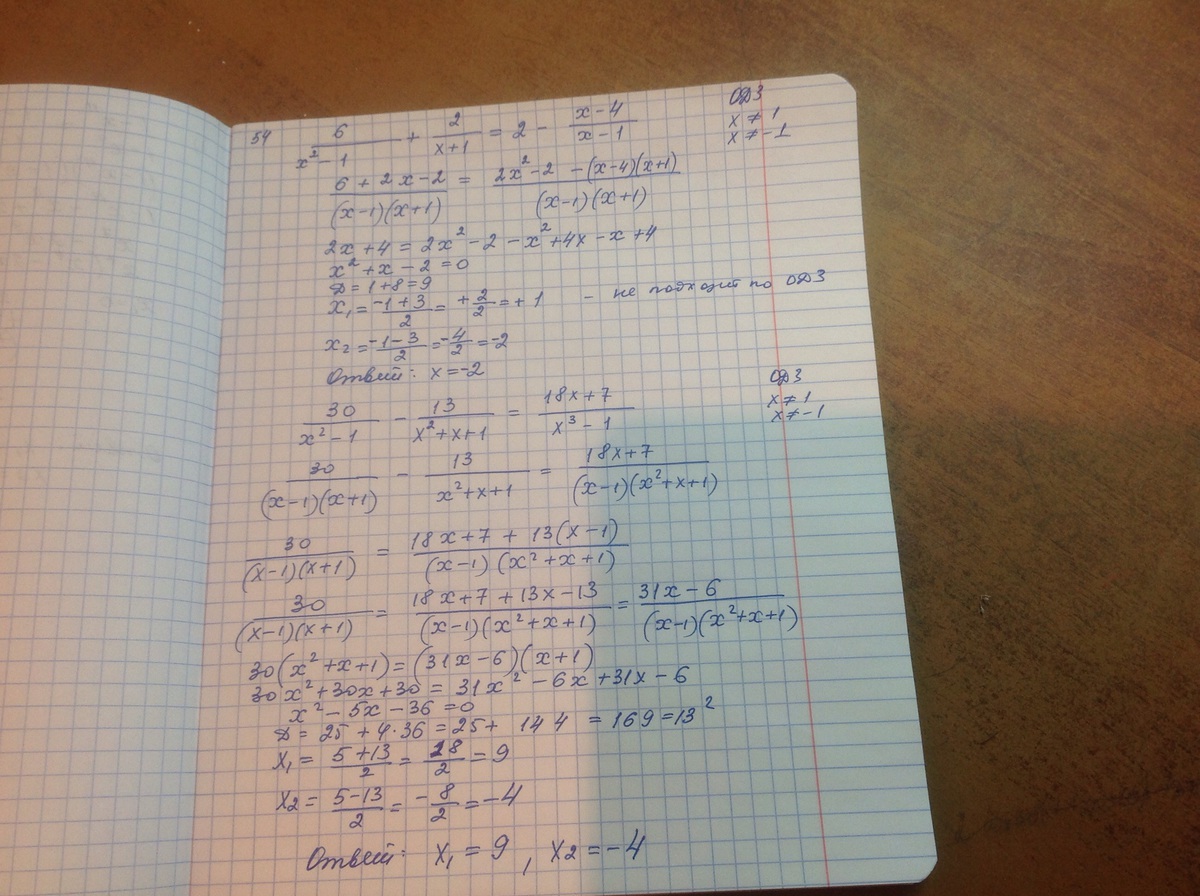 54 6/(x²-1) + 2/(x+1) = 2 - (x-4)/(x-1) ОДЗ
x ≠ 1
x ≠ -1
(6+2x-2)/((x-1)(x+1)) = (2x²-2-(x-4)(x+1))/((x-1)(x+1))
2x+4 = 2x²-2-x²+4x-x+4
x²+x-2=0
D=1+8=9
x₁ = (-1+3)/2 = +2/2 = +1 - не подходит по ОДЗ
x₂ = (-1-3)/2 = -4/2 = -2
Ответ: x=-2
ОДЗ
x ≠ 1
x ≠ -1
30/(x²-1) - 13/(x²+x+1) = (18x+7)/(x³-1)
30/((x-1)(x+1)) - 13/(x²+x+1) = (18x+7)/((x-1)(x²+x+1))
30/((x-1)(x+1)) = (18x+7+13(x-1))/((x-1)(x²+x+1))
30/((x-1)(x+1)) = (18x+7+13x-13)/((x-1)(x²+x+1)) = (31x-6)/((x-1)(x²+x+1))
30(x²+x+1)=(31x-6)(x+1)
30x²+30x+30 = 31x²-6x+31x-6
x²-5x-36=0
D=25+4·36=25+144=169=13²
x₁ = (5+13)/2 = 18/2 = 9
x₂ = (5-13)/2 = -8/2 = -4
Ответ: x₁=9, x₂=-4